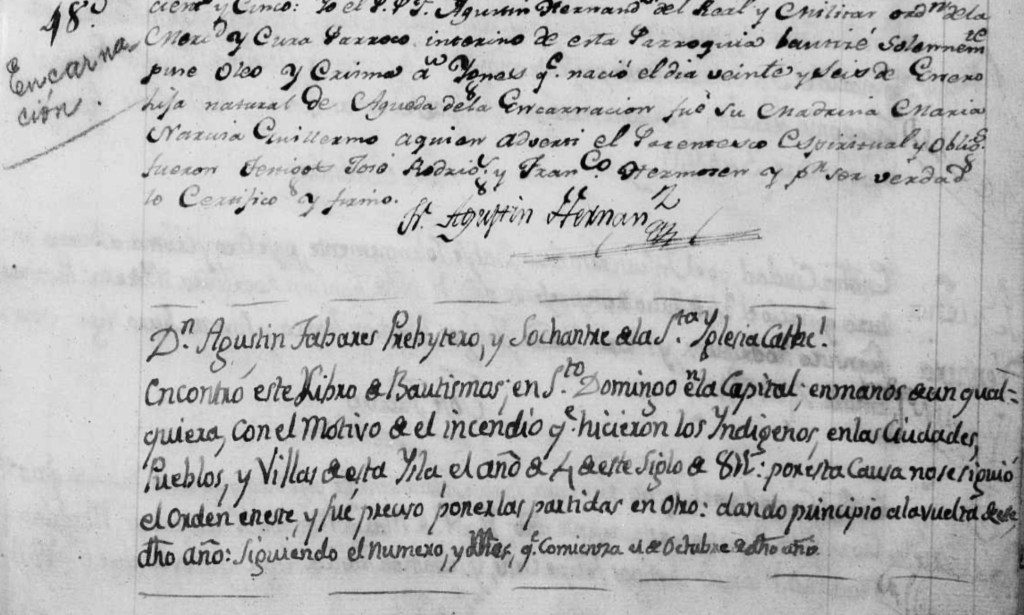 48.
Encarna
ción.
y Cinco: Yo el P. P. F. Agustin Hernand.ˢ del Real y Militar ord.ⁿ de la
Merᵈ y Cura Parroco interino de esta Parroquia bautizé Solemnem.ᵗᵉ
puse Oleo y Crisma a q.ᵉ nació el dia veinte y seis de Enero
hija natural de Agueda dela Encarnacion fue su Madrina Maria
Guillermo aquien adverti el Parentesco Espiritual y Oblig.ˢ
fueron Testigos José Rodrig.ˢ y Fran.ᶜᵒ Hermosen y p.ʳ ser verdad
lo Certifico y firmo.
Fr. Agustin Hernanz
D.ⁿ Agustin Tabares Presbytero, y Sochantre dela S.ᵗᵃ Yglesia Cated.ˡ
Encontró este Libro de Bautismos; en S.ᵗᵒ Domingo enla Capital; enmanos de un qual-
quiera, con el Motivo de el incendio q.ᵉ hicieron los Yndigenos, enlas Ciudades,
Pueblos, y Villas de esta Ysla, el año de 4 de este Siglo de 8 por esta Causa no se siguió
el Orden en este, y fué preciso poner las partidas en Otro: dando principio ala vuelta de este
dho año: Siguiendo el Numero, y q.ᵉ Comienza de Octubre de dho año.